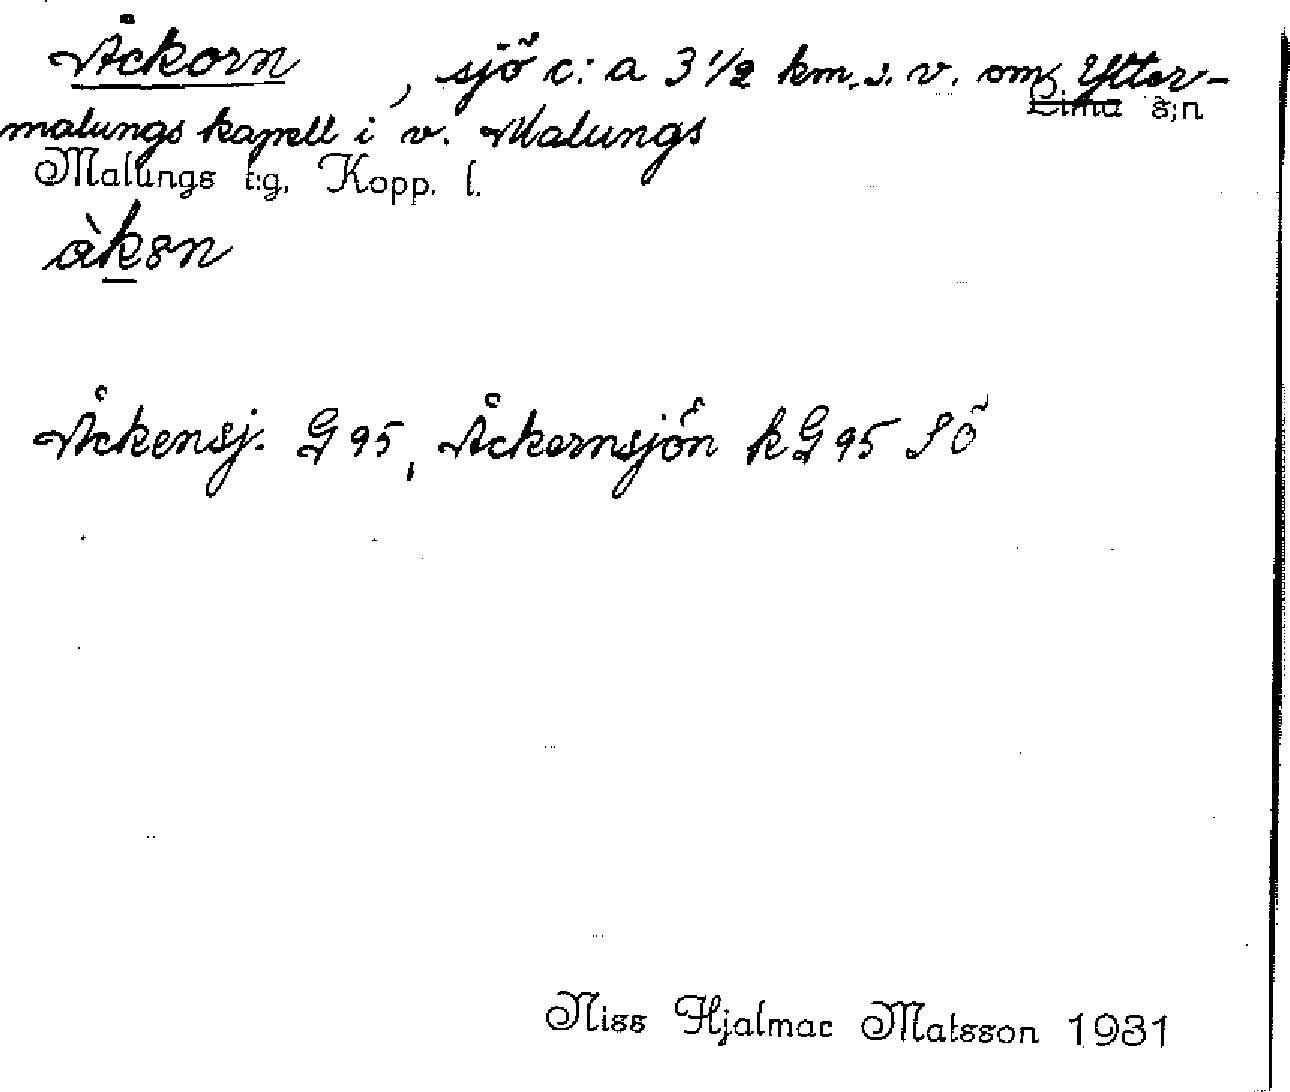 Åckorn, sjö c:a 3 1/2 km. s. v. om Ytter-
Lima s;n
malungs kapell i v. Malungs
Malungs t:g, Kopp. l.
Åckensj. G 95, Åckernsjön k G 95 SÖ
Niss Hjalmar Matsson 1931